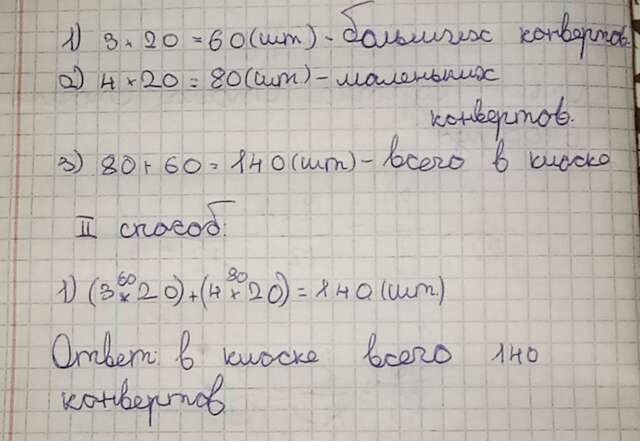 1) 3 × 20 = 60 (шт) - больших конвертов.
2) 4 × 20 = 80 (шт) - маленьких
конвертов.
3) 80 + 60 = 140 (шт) - всего в киоске
II способ:
60 80
1) (3 × 20) + (4 × 20) = 140 (шт)
Ответ: в киоске всего 140
конвертов